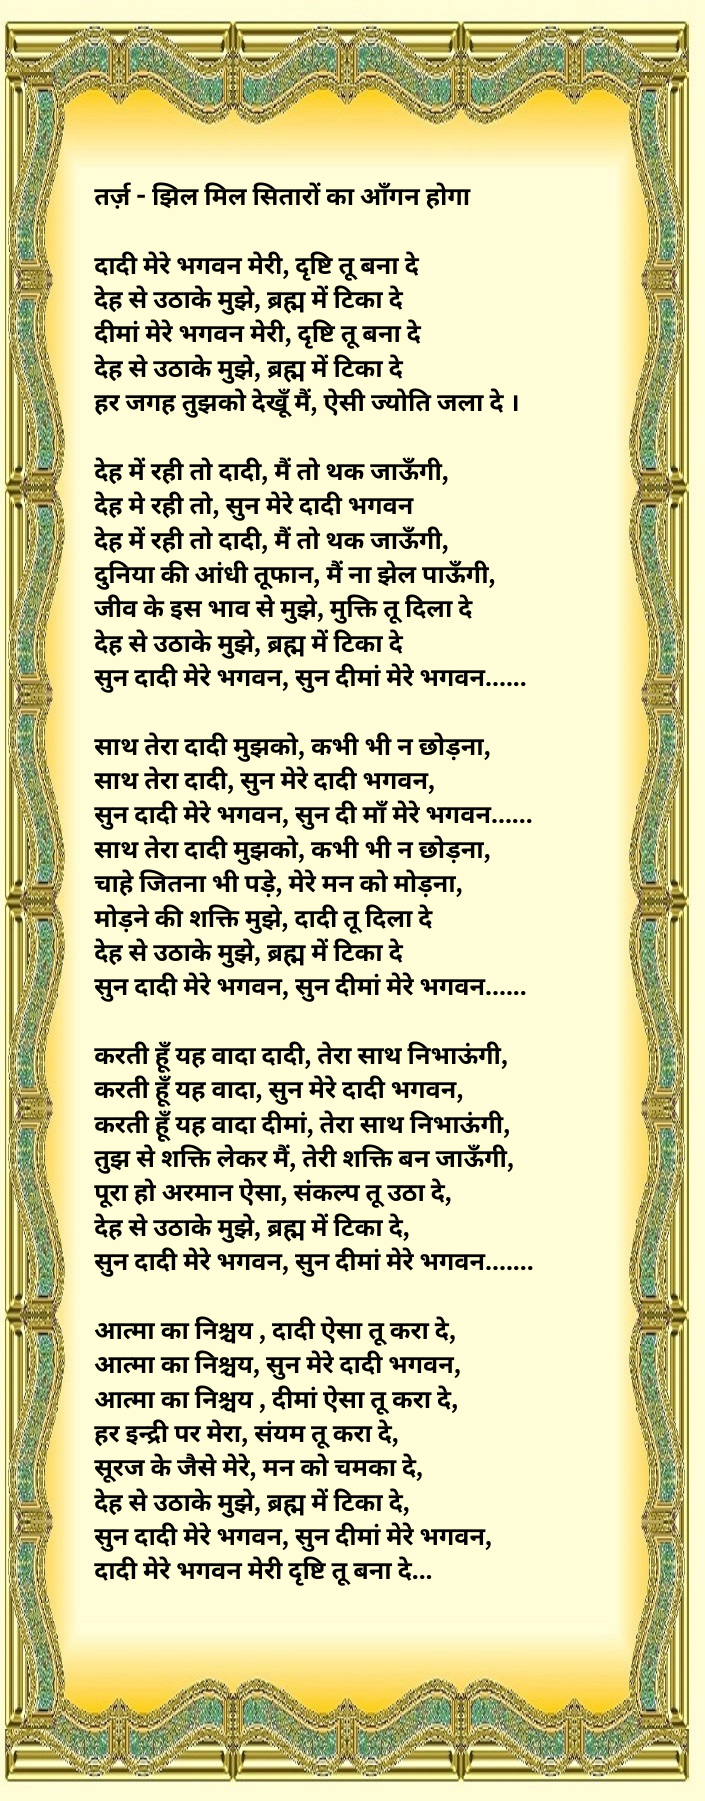 तर्ज़ - झिल मिल सितारों का आँगन होगा
दादी मेरे भगवन मेरी, दृष्टि तू बना दे
देह से उठाके मुझे, ब्रह्म में टिका दे
दीमां मेरे भगवन मेरी, दृष्टि तू बना दे
देह से उठाके मुझे, ब्रह्म में टिका दे
हर जगह तुझको देखूँ मैं, ऐसी ज्योति जला दे ।
देह में रही तो दादी, मैं तो थक जाऊँगी,
देह मे रही तो, सुन मेरे दादी भगवन
देह में रही तो दादी, मैं तो थक जाऊँगी,
दुनिया की आंधी तूफान, मैं ना झेल पाऊँगी,
जीव के इस भाव से मुझे, मुक्ति तू दिला दे
देह से उठाके मुझे, ब्रह्म में टिका दे
सुन दादी मेरे भगवन, सुन दीमां मेरे भगवन......
साथ तेरा दादी मुझको, कभी भी न छोड़ना,
साथ तेरा दादी, सुन मेरे दादी भगवन,
सुन दादी मेरे भगवन, सुन दी माँ मेरे भगवन......
साथ तेरा दादी मुझको, कभी भी न छोड़ना,
चाहे जितना भी पड़े, मेरे मन को मोड़ना,
मोड़ने की शक्ति मुझे, दादी तू दिला दे
देह से उठाके मुझे, ब्रह्म में टिका दे
सुन दादी मेरे भगवन, सुन दीमां मेरे भगवन......
करती हूँ यह वादा दादी, तेरा साथ निभाऊंगी,
करती हूँ यह वादा, सुन मेरे दादी भगवन,
करती हूँ यह वादा दीमां, तेरा साथ निभाऊंगी,
तुझ से शक्ति लेकर मैं, तेरी शक्ति बन जाऊँगी,
पूरा हो अरमान ऐसा, संकल्प तू उठा दे,
देह से उठाके मुझे, ब्रह्म में टिका दे,
सुन दादी मेरे भगवन, सुन दीमां मेरे भगवन.......
आत्मा का निश्चय , दादी ऐसा तू करा दे,
आत्मा का निश्चय, सुन मेरे दादी भगवन,
आत्मा का निश्चय , दीमां ऐसा तू करा दे,
हर इन्द्री पर मेरा, संयम तू करा दे,
सूरज के जैसे मेरे, मन को चमका दे,
देह से उठाके मुझे, ब्रह्म में टिका दे,
सुन दादी मेरे भगवन, सुन दीमां मेरे भगवन,
दादी मेरे भगवन मेरी दृष्टि तू बना दे...